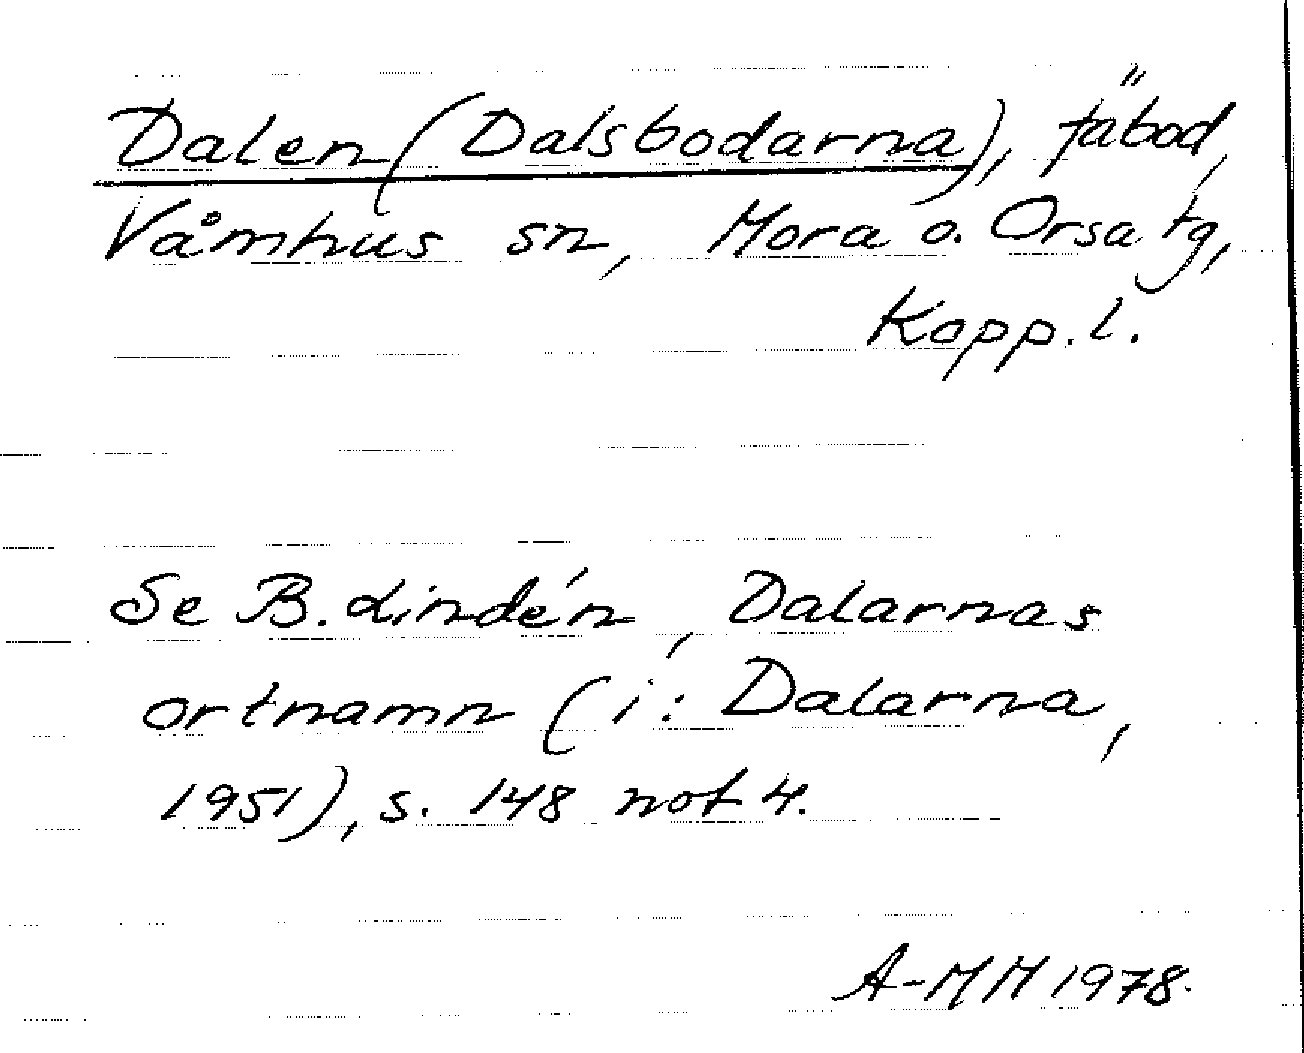 Dalen (Dalsbodarna), fäbod,
Våmhus sn, Mora o. Orsa tg,
Kopp. l.
Se B. Lindén, Dalarnas
ortnamn (i: Dalarna,
1951), s. 148 not 4.
A-MM 1978.